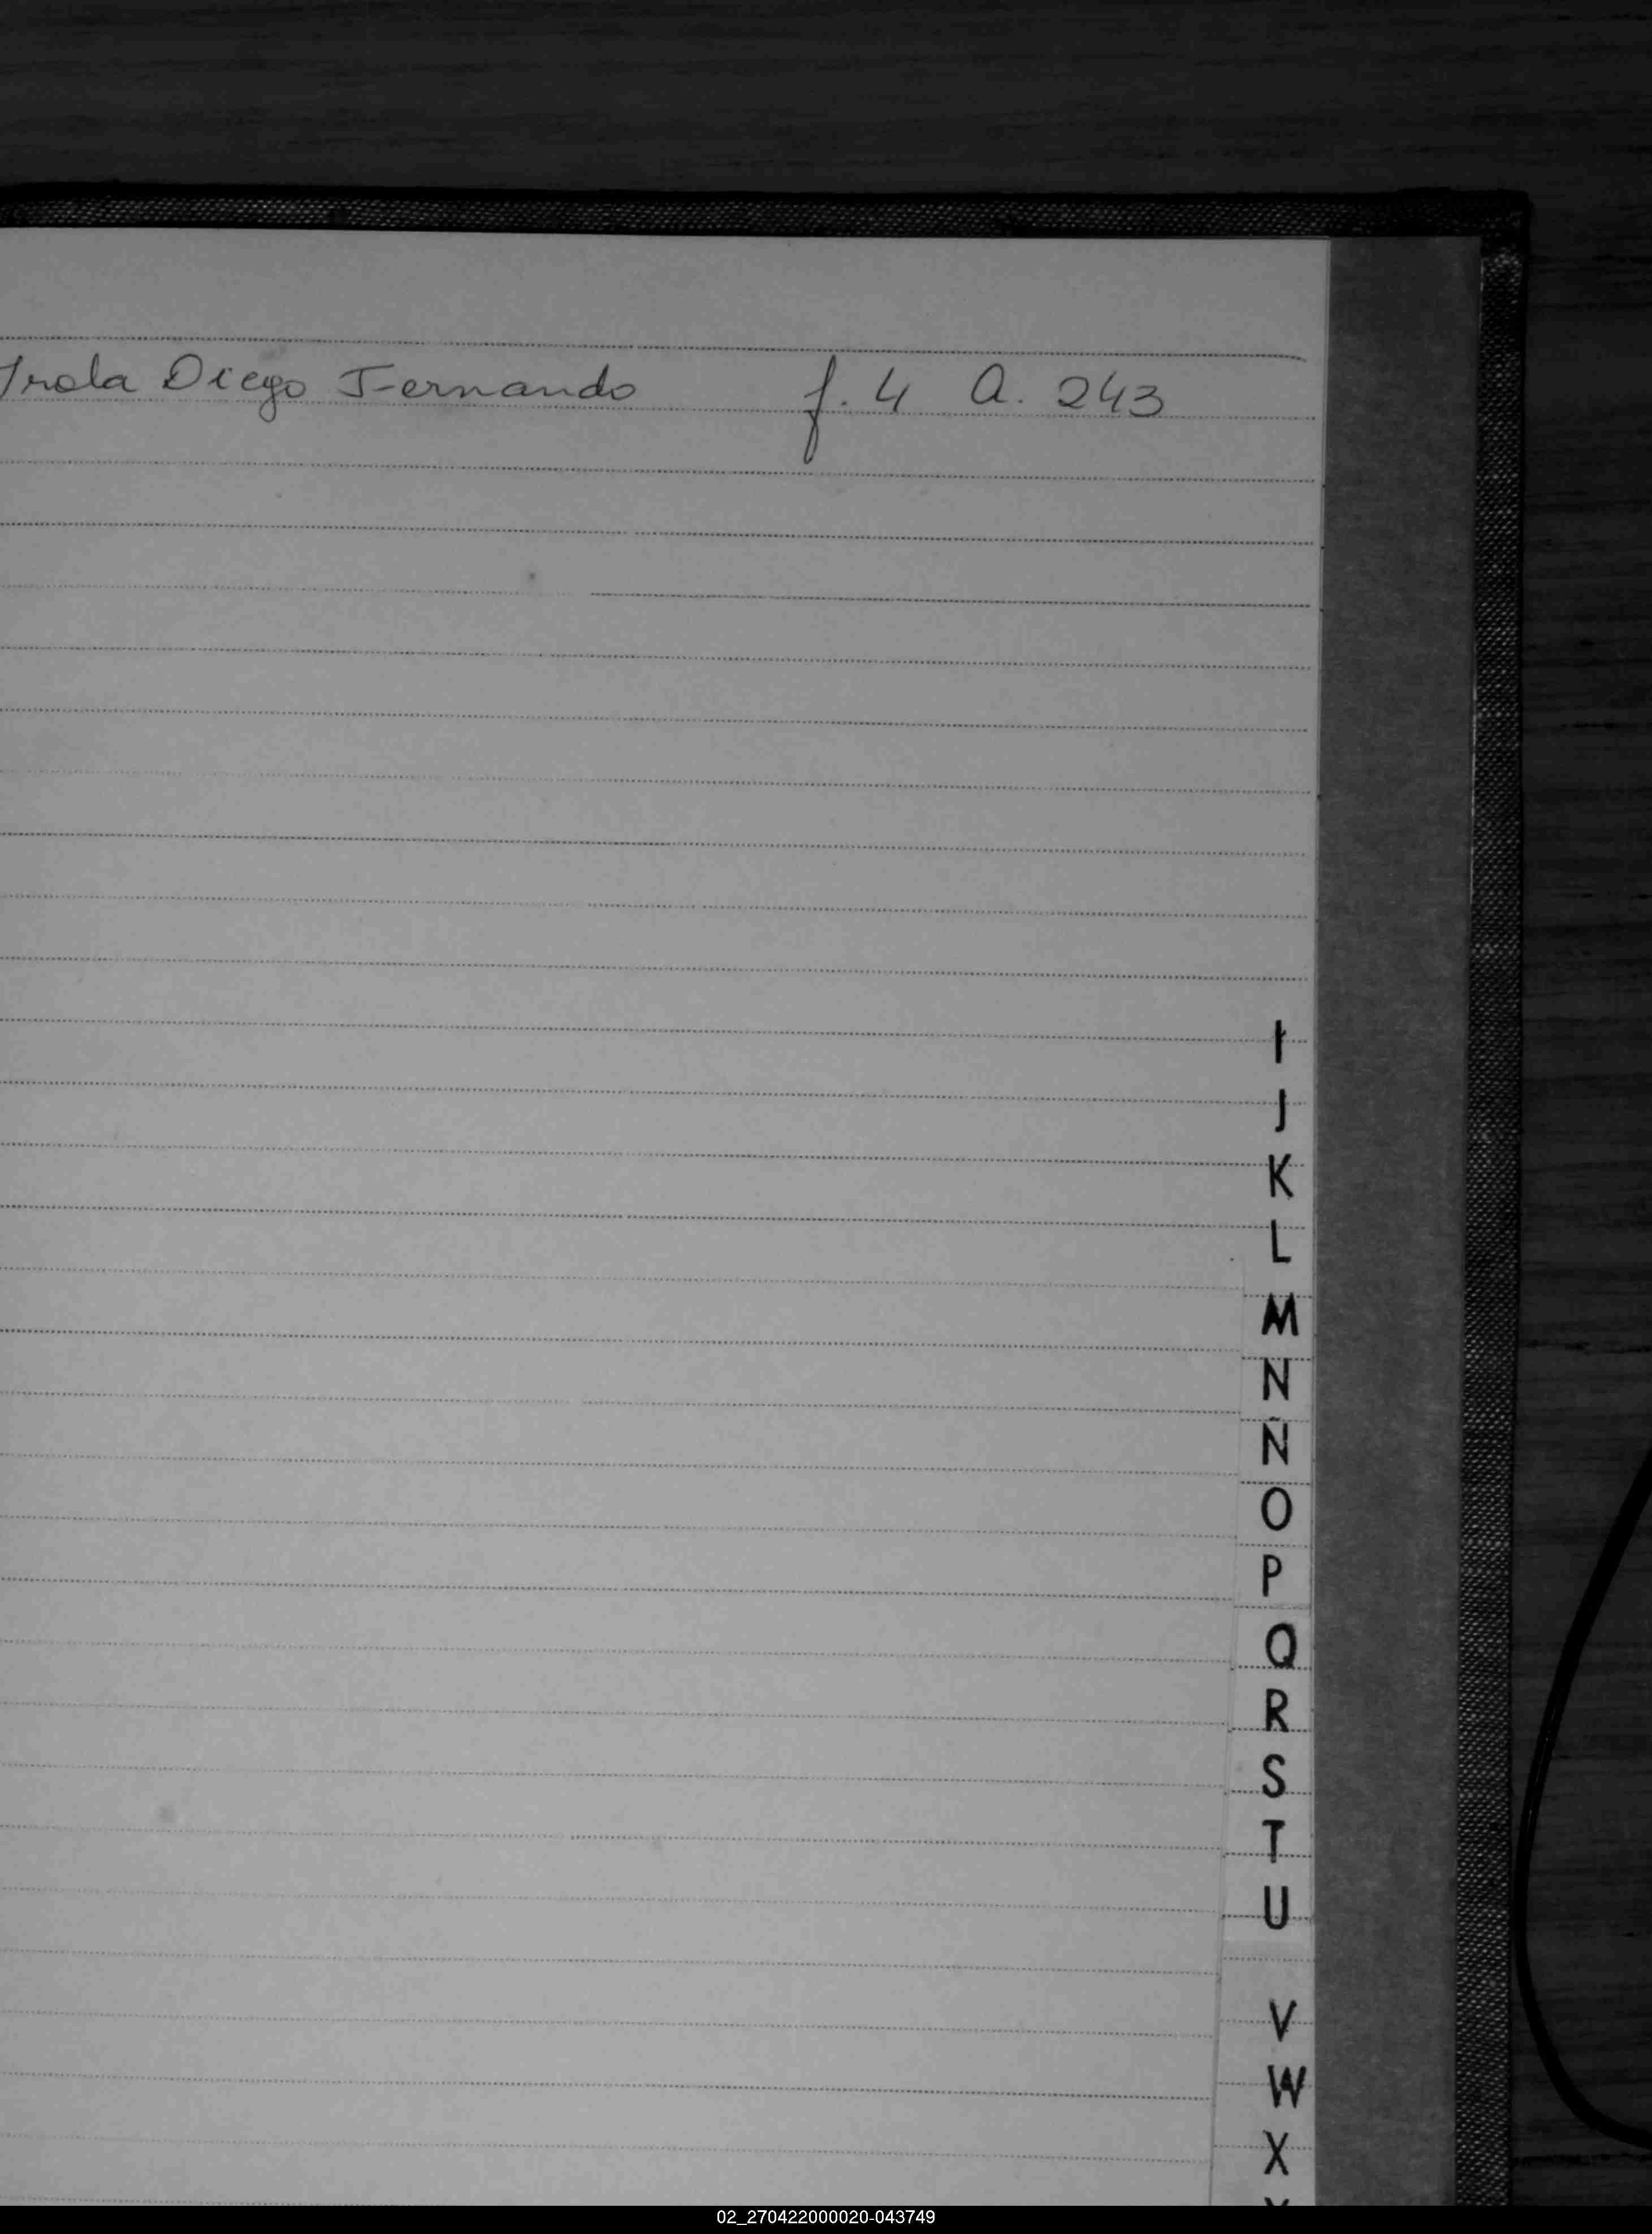 Irola Diego Fernando f. 4 A. 243
I
J
K
L
M
N
Ñ
O
P
Q
R
S
T
U
V
W
X
02_270422000020-043749